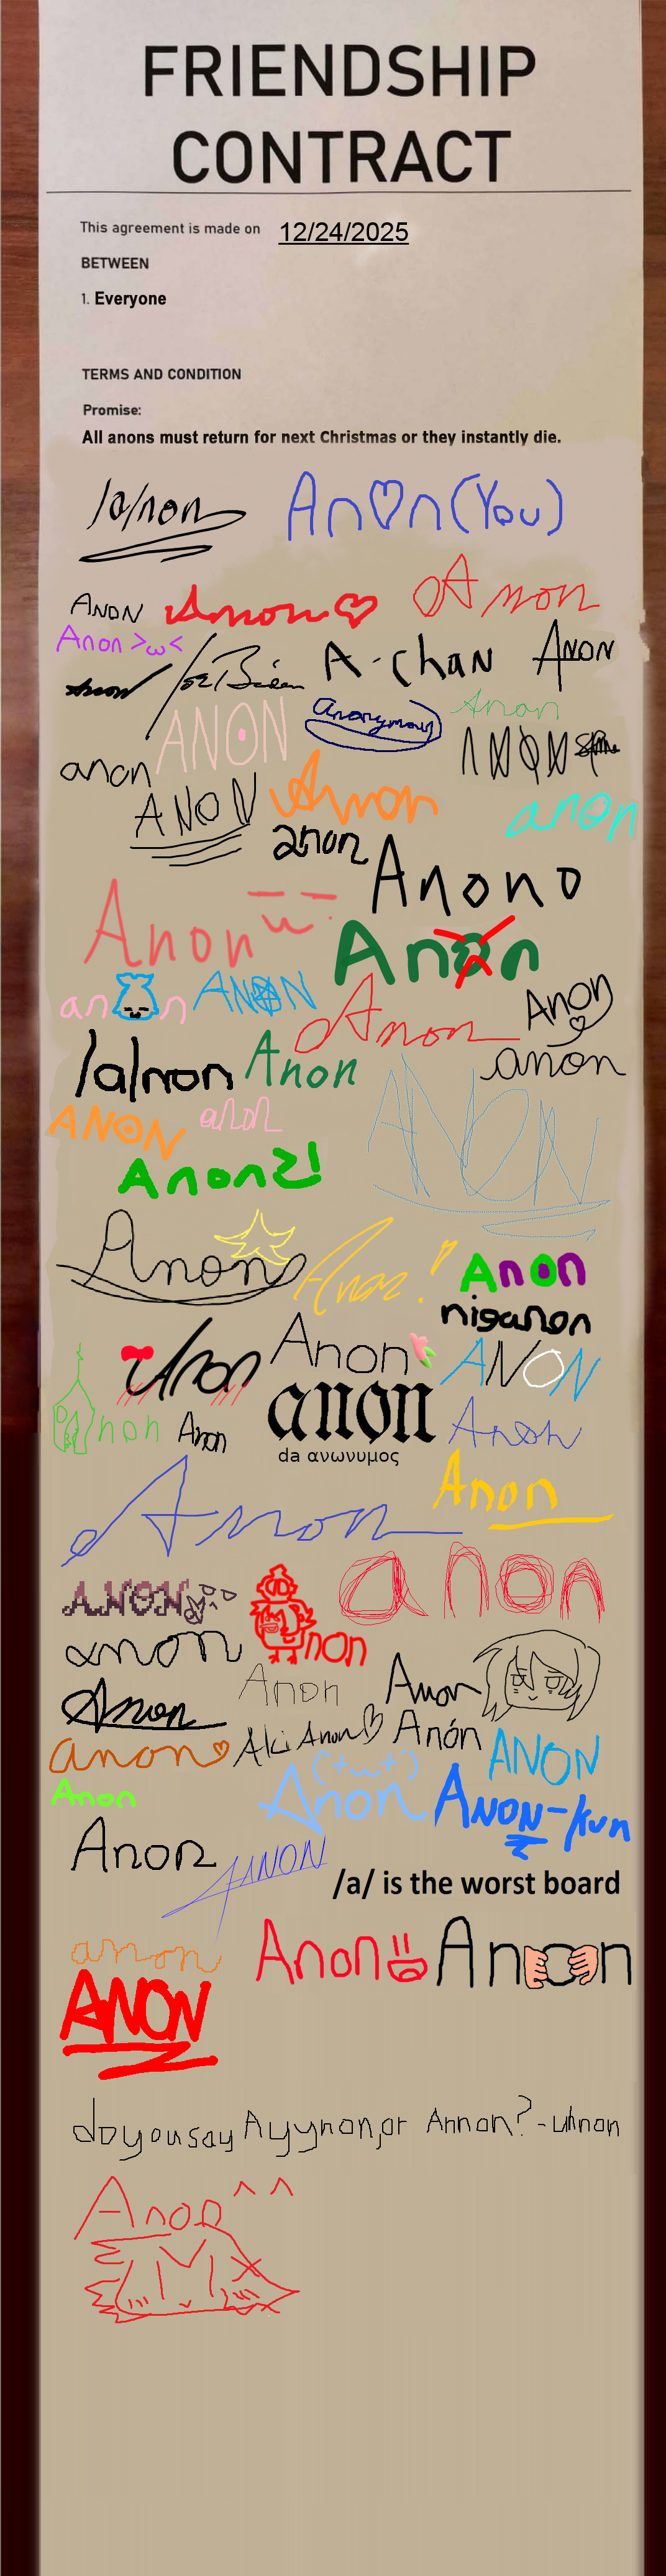 FRIENDSHIP
CONTRACT
This agreement is made on 12/24/2025
BETWEEN
1. Everyone
TERMS AND CONDITION
Promise:
All anons must return for next Christmas or they instantly die.
/a/non An♡n (You)
ANON Anon♡ Anon
Anon >ω<
Anon Joe Biden A-chan ANON
ANON Anonymous Anon
anon ANON
ANON Anon anon
anon Anono
Anon Anon
an n ANON Anon Anon
/a/non Anon anon
ANON anon ANON
Anonz!
Anon Anon! Anon
niganon
Anon Anon ANON
Anon Anon anon Anon
da ανωνυμος
Anon Anon
ANON non anon
anon Anon Anon
Anon Aki Anon♡ Anón ANON
anon♡
Anon Anon ANON-kun
('+ω+')
Anon ANON
/a/ is the worst board
anon Anon Anon
ANON
do you say Ayynon, or Annon? - uhnon
Anon ^^